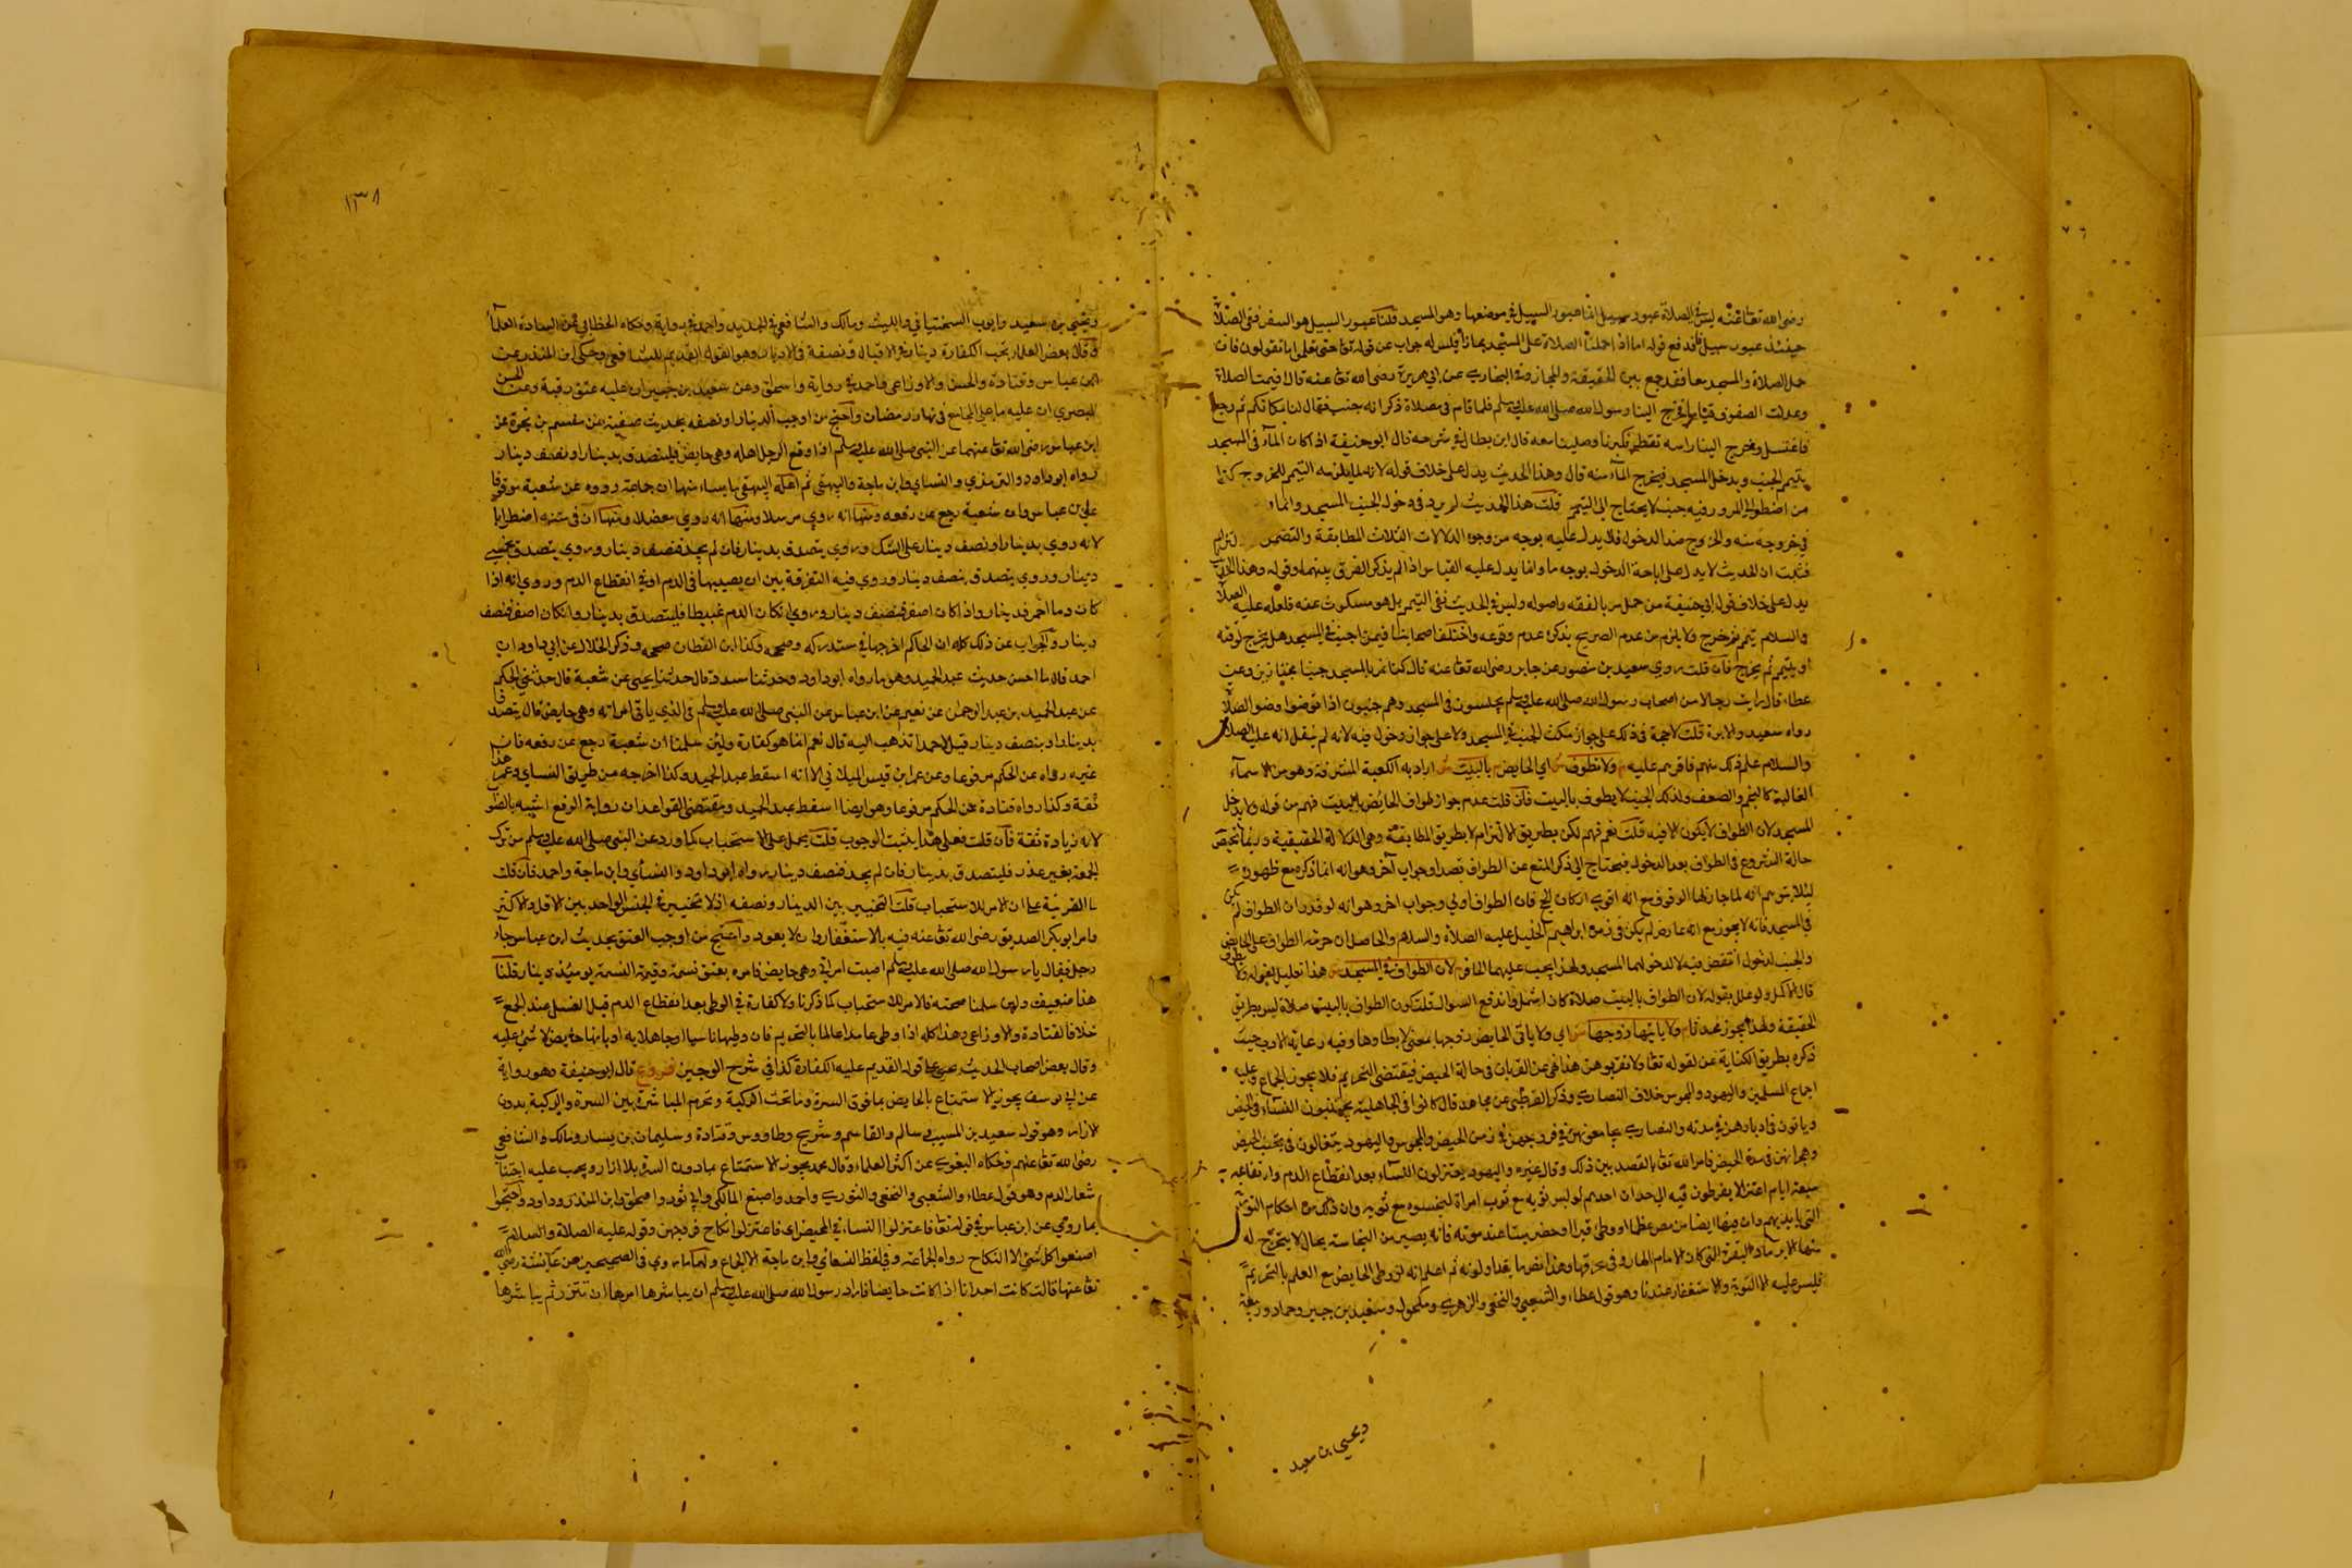 رضى الله تعا عنه ليس في الصلاة عبور سبيل انما عبور السبيل في موضعها وهو المسجد قلنا عبور السبيل هو السفر ففى الصلاة
حينئذ عبور سبيل فاندفع قوله اما اذا حملنا الصلاة على المسجد مجازا فليس له جواب عن قوله تعا حتى تعلموا ما تقولون فان
حمل الصلاة والمسجد معا فقد جمع بين الحقيقة والمجاز وفى البخارى عن ابي هريرة رضى الله تعا عنه قال اقيمت الصلاة
وعدلت الصفوف قياما فخرج الينا رسول الله صلى الله عليه وسلم فلما قام فى مصلاه ذكر انه جنب فقال لنا مكانكم ثم رجع
فاغتسل وخرج الينا راسه تقطر فكبرنا وصلينا معه قال ابن بطال في شرحه قال ابو حنيفة اذا كان الماء فى المسجد
يتيمم الجنب ويدخل المسجد فيخرج الماء منه قال وهذا الحديث يدل على خلاف قوله لانه لما يلزمه التيمم للخروج كذا
من اضطر الى المرور فيه جنبا لا يحتاج الى التيمم قلت هذا الحديث لم يرد فى دخول الجنب المسجد وانما
في خروجه منه والخروج ضد الدخول فلا يدل عليه بوجه من وجوه الدلالات الثلاث المطابقة والتضمن
فثبت ان الحديث لا يدل على اباحة الدخول بوجه ما وانما يدل عليه القياس اذا لم يذكر الفرق بينهما وقوله وهذا الحديث
يدل على خلاف قول ابي حنيفة من جهل بالفقه واصوله وليس فى الحديث نفى التيمم بل هو مسكوت عنه فلعله عليه الصلاة
والسلام تيمم ثم خرج ولا يلزم من عدم الصريح بذكره عدم وقوعه واختلف اصحابنا فيمن اجنب في المسجد هل يخرج لوقته
او يتيمم ثم يخرج فان قلت روى سعيد بن منصور عن جابر رضى الله تعا عنه قال كنا نمر بالمسجد جنبا مجتازين وعن
عطاء قال رايت رجالا من اصحاب رسول الله صلى الله عليه وسلم يجلسون فى المسجد وهم جنبون اذا توضوا وضو الصلاة
رواه سعيد والاثرم قلت لا حجة فى ذلك على جواز مكث الجنب في المسجد ولا على جواز دخول فيه لانه لم ينقل انه عليه الصلاة
والسلام علم ذلك منهم فاقرهم عليه م ولا تطوف ش اي الحايض م بالبيت ش اراد به الكعبة المشرفة وهو من الاسماء
الغالبة كالنجم والصعق وكذلك الجنب لا يطوف بالبيت فان قلت عدم جواز طواف الحائض بالبيت فهم من قوله ولا يدخل
المسجد لان الطواف لا يكون الا فيه قلت نعم فهم لكن بطريق الالتزام لا بطريق المطابقة وهى الدلالة الحقيقية وربما تحيض
حالة الشروع فى الطواف بعد الدخول فيحتاج الى ذكر المنع عن الطواف قصدا وجواب آخر وهو انه انما ذكره مع ظهوره
ليلا يتوهم انه لما جاز لها الوقوف مع انه اقوى اركان الحج فلان الطواف اولى وجواب اخر وهو انه لو قدر ان الطواف لم يكن
في المسجد فانه لا يجوز مع انه عارض لم يكن فى زمن ابراهيم الخليل عليه الصلاة والسلام والحاصل ان حرمة الطواف على الحايض
والجنب لدخول النقص فيه لا لدخولهما المسجد ولهذا يجب عليهما الجابر م لان الطواف في المسجد ش هذا تعليل لقوله ولا تطوف
قال الاكمل ولو علل بقوله لان الطواف بالبيت صلاة كان اشمل واندفع السوال قلت كون الطواف بالبيت صلاة ليس بطريق
الحقيقة ولهذا يجوز محدثا م ولا ياتيها زوجها ش اي ولا ياتى الحايض زوجها بمعنى لا يطاوها وفيه رعاية الادب حيث
ذكره بطريق الكناية م لقوله تعا ولا تقربوهن هذا نهى عن القربان فى حالة الحيض فيقتضى التحريم فلا يجوز الجماع وعليه
اجماع المسلمين واليهود والمجوس خلاف النصارى وذكر القرطبى عن مجاهد قال كانوا فى الجاهلية يجتنبون النساء فى الحيض
وياتون فى ادبارهن في مدته والنصارى يجامعونهن في فروجهن في زمن الحيض والمجوس واليهود يتغالون فى تجنب الحيض
وهجرانهن فى مدة الحيض فامر الله تعا بالقصد بين ذلك وقال غيره واليهود يعتزلون النساء بعد انقطاع الدم وارتفاعه
سبعة ايام اعتزالا يفرطون فيه الى حد ان احدهم لو لبس ثوبه مع ثوب امراة لينجسوه مع ثوبه وان ذلك من احكام التوراة
التى بايديهم وان فيها ايضا من مس عظما او وطئ قبرا او حضر ميتا عند موته فانه يصير من النجاسة بحال لا يخرج له
منها الا برماد البقرة التى كان الامام الهارونى يحرقها وهذا نص ما يتداولونه ثم اعلم انه لو وطى الحايض مع العلم بالتحريم
فليس عليه الا التوبة والاستغفار عندنا وهو قول عطاء والشعبي والنخعى والزهرى ومكحول وسعيد بن جبير وحماد وربيعة
ويحيى بن سعيد
١٣٨
ويحيى بن سعيد وايوب السختيانى والليث ومالك والشافعي في الجديد واحمد في رواية وحكاه الخطابي عن
وقال بعض العلماء تجب الكفارة دينار في الاقبال ونصفه فى الادبار وهو القول القديم للشافعى وحكى ابن المنذر عن
ابن عباس وقتادة والحسن والاوزاعى واحمد في رواية واسحاق وعن سعيد بن جبير ان عليه عتق رقبة وعن الحسن
البصري ان عليه ما على المجامع فى نهار رمضان واحتج من اوجب الدينار او نصفه بحديث عن مقسم بن بجرة عن
ابن عباس رضى الله تعا عنهما عن النبى صلى الله عليه وسلم اذا وقع الرجل اهله وهى حايض فليتصدق بدينار او نصف دينار
رواه ابو داود والترمذي والنسائي وابن ماجة والبيهقى ثم اعله البيهقى باسياء منها ان جماعة رووه عن شعبة موقوفا
على ابن عباس وان شعبة رجع عن رفعه ومنها انه روي مرسلا ومنها انه روي معضلا ومنها ان فى متنه اضطرابا
لانه روي بدينار او نصف دينار على الشك وروي يتصدق بدينار فان لم يجد فنصف دينار وروي يتصدق بخمسي
دينار وروي يتصدق بنصف دينار وروي فيه التفرقة بين ان يصيبها فى الدم او فى انقطاع الدم وروي انه اذا
كان دما احمر فدينار واذا كان اصفر فنصف دينار وروي ان كان الدم عبيطا فليتصدق بدينار وان كان اصفر فنصف
دينار والجواب عن ذلك كله ان الحاكم اخرجها في مستدركه وصححه وكذا ابن القطان صححه وذكر الخلال عن ابي داود ان
احمد قال ما احسن حديث عبد الحميد وهو ما رواه ابو داود وحدثنا مسدد قال حدثنا يحيى عن شعبة قال حدثني الحكم
عن عبد الحميد بن عبد الرحمان عن مقسم عن ابن عباس عن النبى صلى الله عليه وسلم فى الذي ياتى امراته وهى حايض قال يتصدق
بدينار او بنصف دينار قيل لاحمد تذهب اليه قال نعم انما هو كفارة ولئن سلمنا ان شعبة رجع عن رفعه فان
غيره رواه عن الحكم مرفوعا وهو عمرو ابن قيس الملائي الا انه اسقط عبد الحميد وكذا اخرجه من طريق النساي وعمرو هذا
ثقة وكذا رواه قتادة عن الحكم مرفوعا وهو ايضا اسقط عبد الحميد ومقتضى القواعد ان رواية الرفع اشبه بالصواب
لانه زيادة ثقة فان قلت فعلى هذا يثبت الوجوب قلت يحمل على الاستحباب كما ورد عن النبى صلى الله عليه وسلم من ترك
الجمعة بغير عذر فليتصدق بدينار فان لم يجد فنصف دينار رواه ابو داود والنسائي وابن ماجة واحمد فان قلت
ما القرينة على ان الامر للاستحباب قلت التخيير بين الدينار ونصفه اذ لا تخيير في الجنس الواحد بين الاقل والاكثر
وامر ابو بكر الصديق رضى الله تعا عنه فيه بالاستغفار وان لا يعود واحتج من اوجب العتق بحديث ابن عباس جاء
رجل فقال يا رسول الله صلى الله عليه وسلم اصبت امراتي وهى حايض فامره بعتق نسمة وقيمة النسمة يومئذ دينار قلنا
هذا ضعيف ولئن سلمنا صحته فالامر للاستحباب كما ذكرنا ولا كفارة في الوطى بعد انقطاع الدم قبل الغسل عند الجمع
خلافا لقتادة والاوزاعى وهذا كله اذا وطى عامدا عالما بالتحريم فان وطيها ناسيا او جاهلا به او بانها حايض لا شى عليه
وقال بعض اصحاب الحديث يجى على قوله القديم عليه الكفارة كذا في شرح الوجيز فروع قال ابو حنيفة وهو رواية
عن ابي يوسف يجوز الاستمتاع بالحايض بما فوق السرة وما تحت الركبة وتحرم المباشرة بين السرة والركبة بدون
الازار وهو قول سعيد بن المسيب وسالم والقاسم وشريح وطاووس وقتادة وسليمان بن يسار ومالك والشافعى
رضى الله تعا عنهم وحكاه البغوى عن اكثر العلماء وقال محمد يجوز الاستمتاع بما دون السرة بلا ازار ويجب عليه اجتناب
شعار الدم وهو قول عطاء والشعبي والنخعى والثورى واحمد واصبغ المالكى وابي ثور واسحاق وابن المنذر وداود واحتجوا
بما روي عن ابن عباس في قوله تعا فاعتزلوا النساء في المحيض اى فاعتزلوا نكاح فروجهن وقوله عليه الصلاة والسلام
اصنعوا كل شئ الا النكاح رواه الجماعة وفى لفظ النسائي وابن ماجة الا الجماع ولهما ما روي فى الصحيحين عن عائشة رضى الله
تعا عنها قالت كانت احدانا اذا كانت حايضا فاراد رسول الله صلى الله عليه وسلم ان يباشرها امرها ان تتزر ثم يباشرها